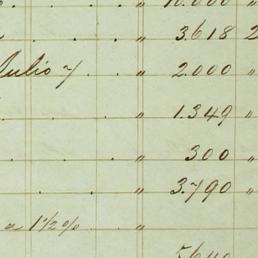 . . " 10.000 "
. . " 3.618 2
Julio 7 . . " 2.000 "
. . " 1.349 "
. . " 300 "
. . " 3.790 "
a 1 1/2 % . "
5.640